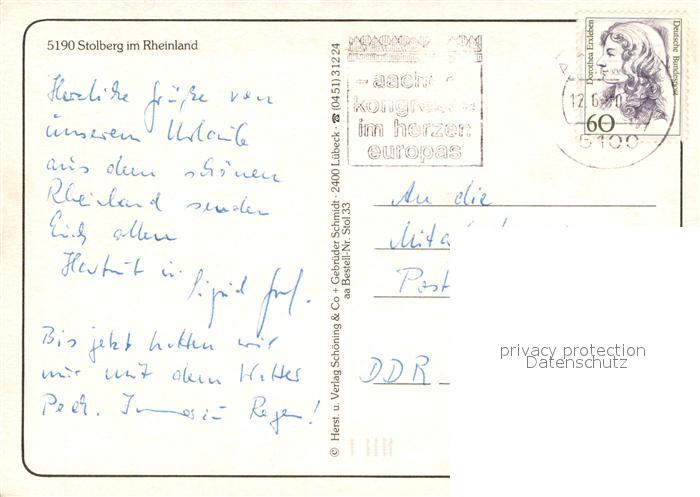 5190 Stolberg im Rheinland
Herzliche Grüße von
unserem Urlaub
aus dem schönen
Rheinland senden
Euch allen
Hartmut u.
Bis jetzt hatten wir
nur mit dem Wetter
Pech. Immerzu Regen!
© Herst. u. Verlag Schöning & Co + Gebrüder Schmidt · 2400 Lübeck · ☎ (0451) 31224
aa Bestell-Nr. Stol 33
aach
kongre
im herzen
europas
12.6
5100
Dorothea Erxleben
Deutsche Bundespost
60
An die
Mita
Post
DDR
privacy protection
Datenschutz